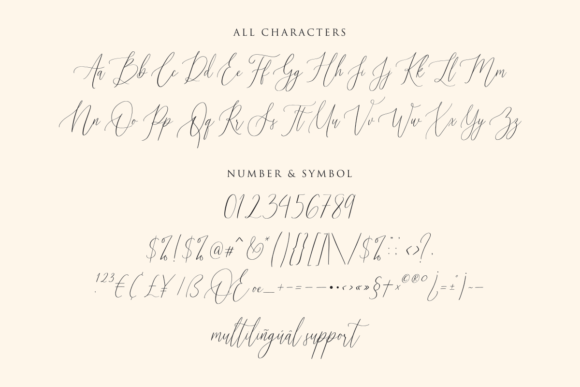 ALL CHARACTERS
Aa Bb Cc Dd Ee Ff Gg Hh Ii Jj Kk Ll Mm
Nn Oo Pp Qq Rr Ss Tt Uu Vv Ww Xx Yy Zz
NUMBER & SYMBOL
0123456789
$%!$%@#^&*()[]/$%:;<>?.
123€¢£¥ŒOEoe_+-=§†×©®°¿=±
multilingüal support